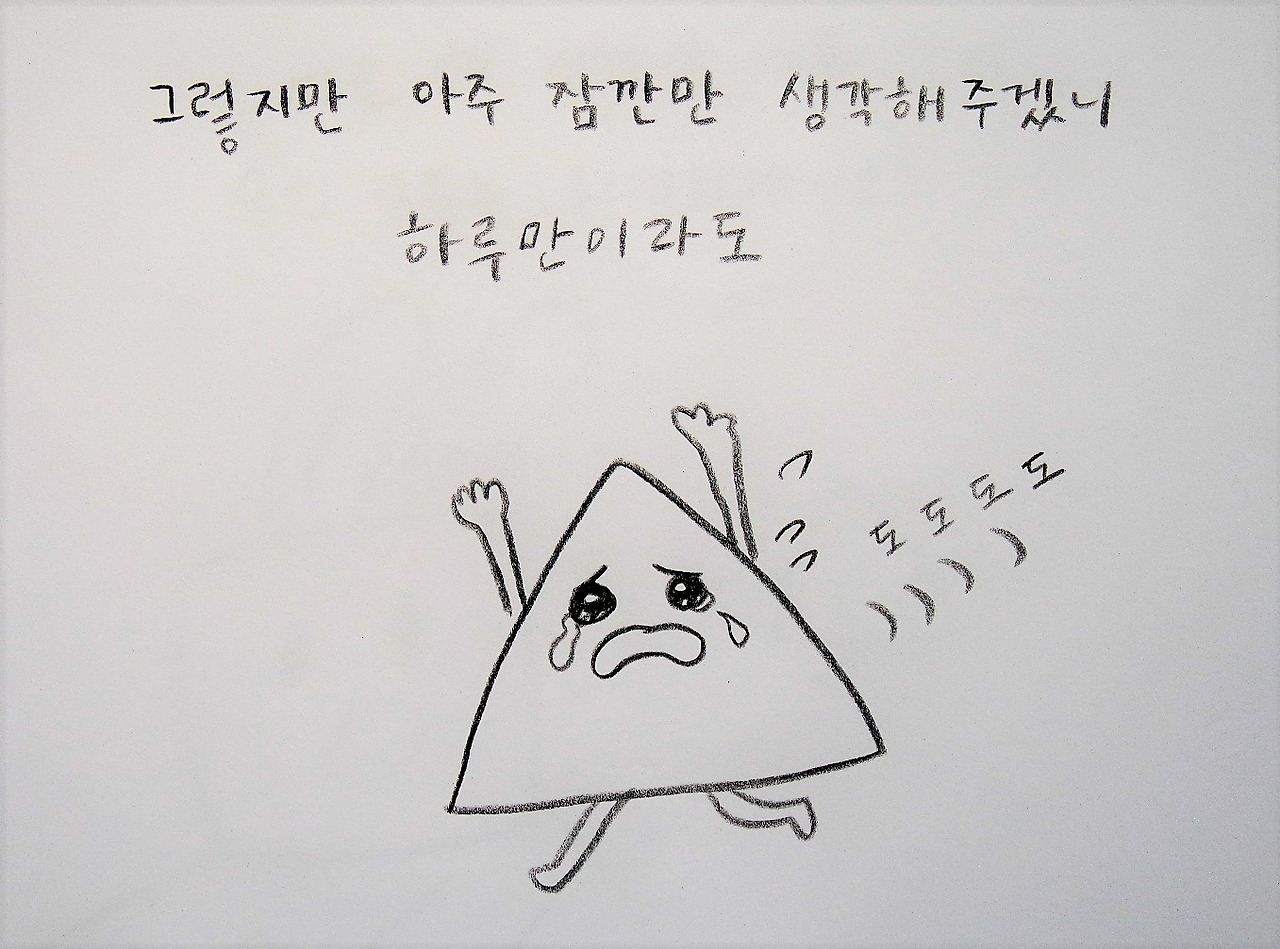 그렇지만 아주 잠깐만 생각해주겠니
하루만이라도
도도도도